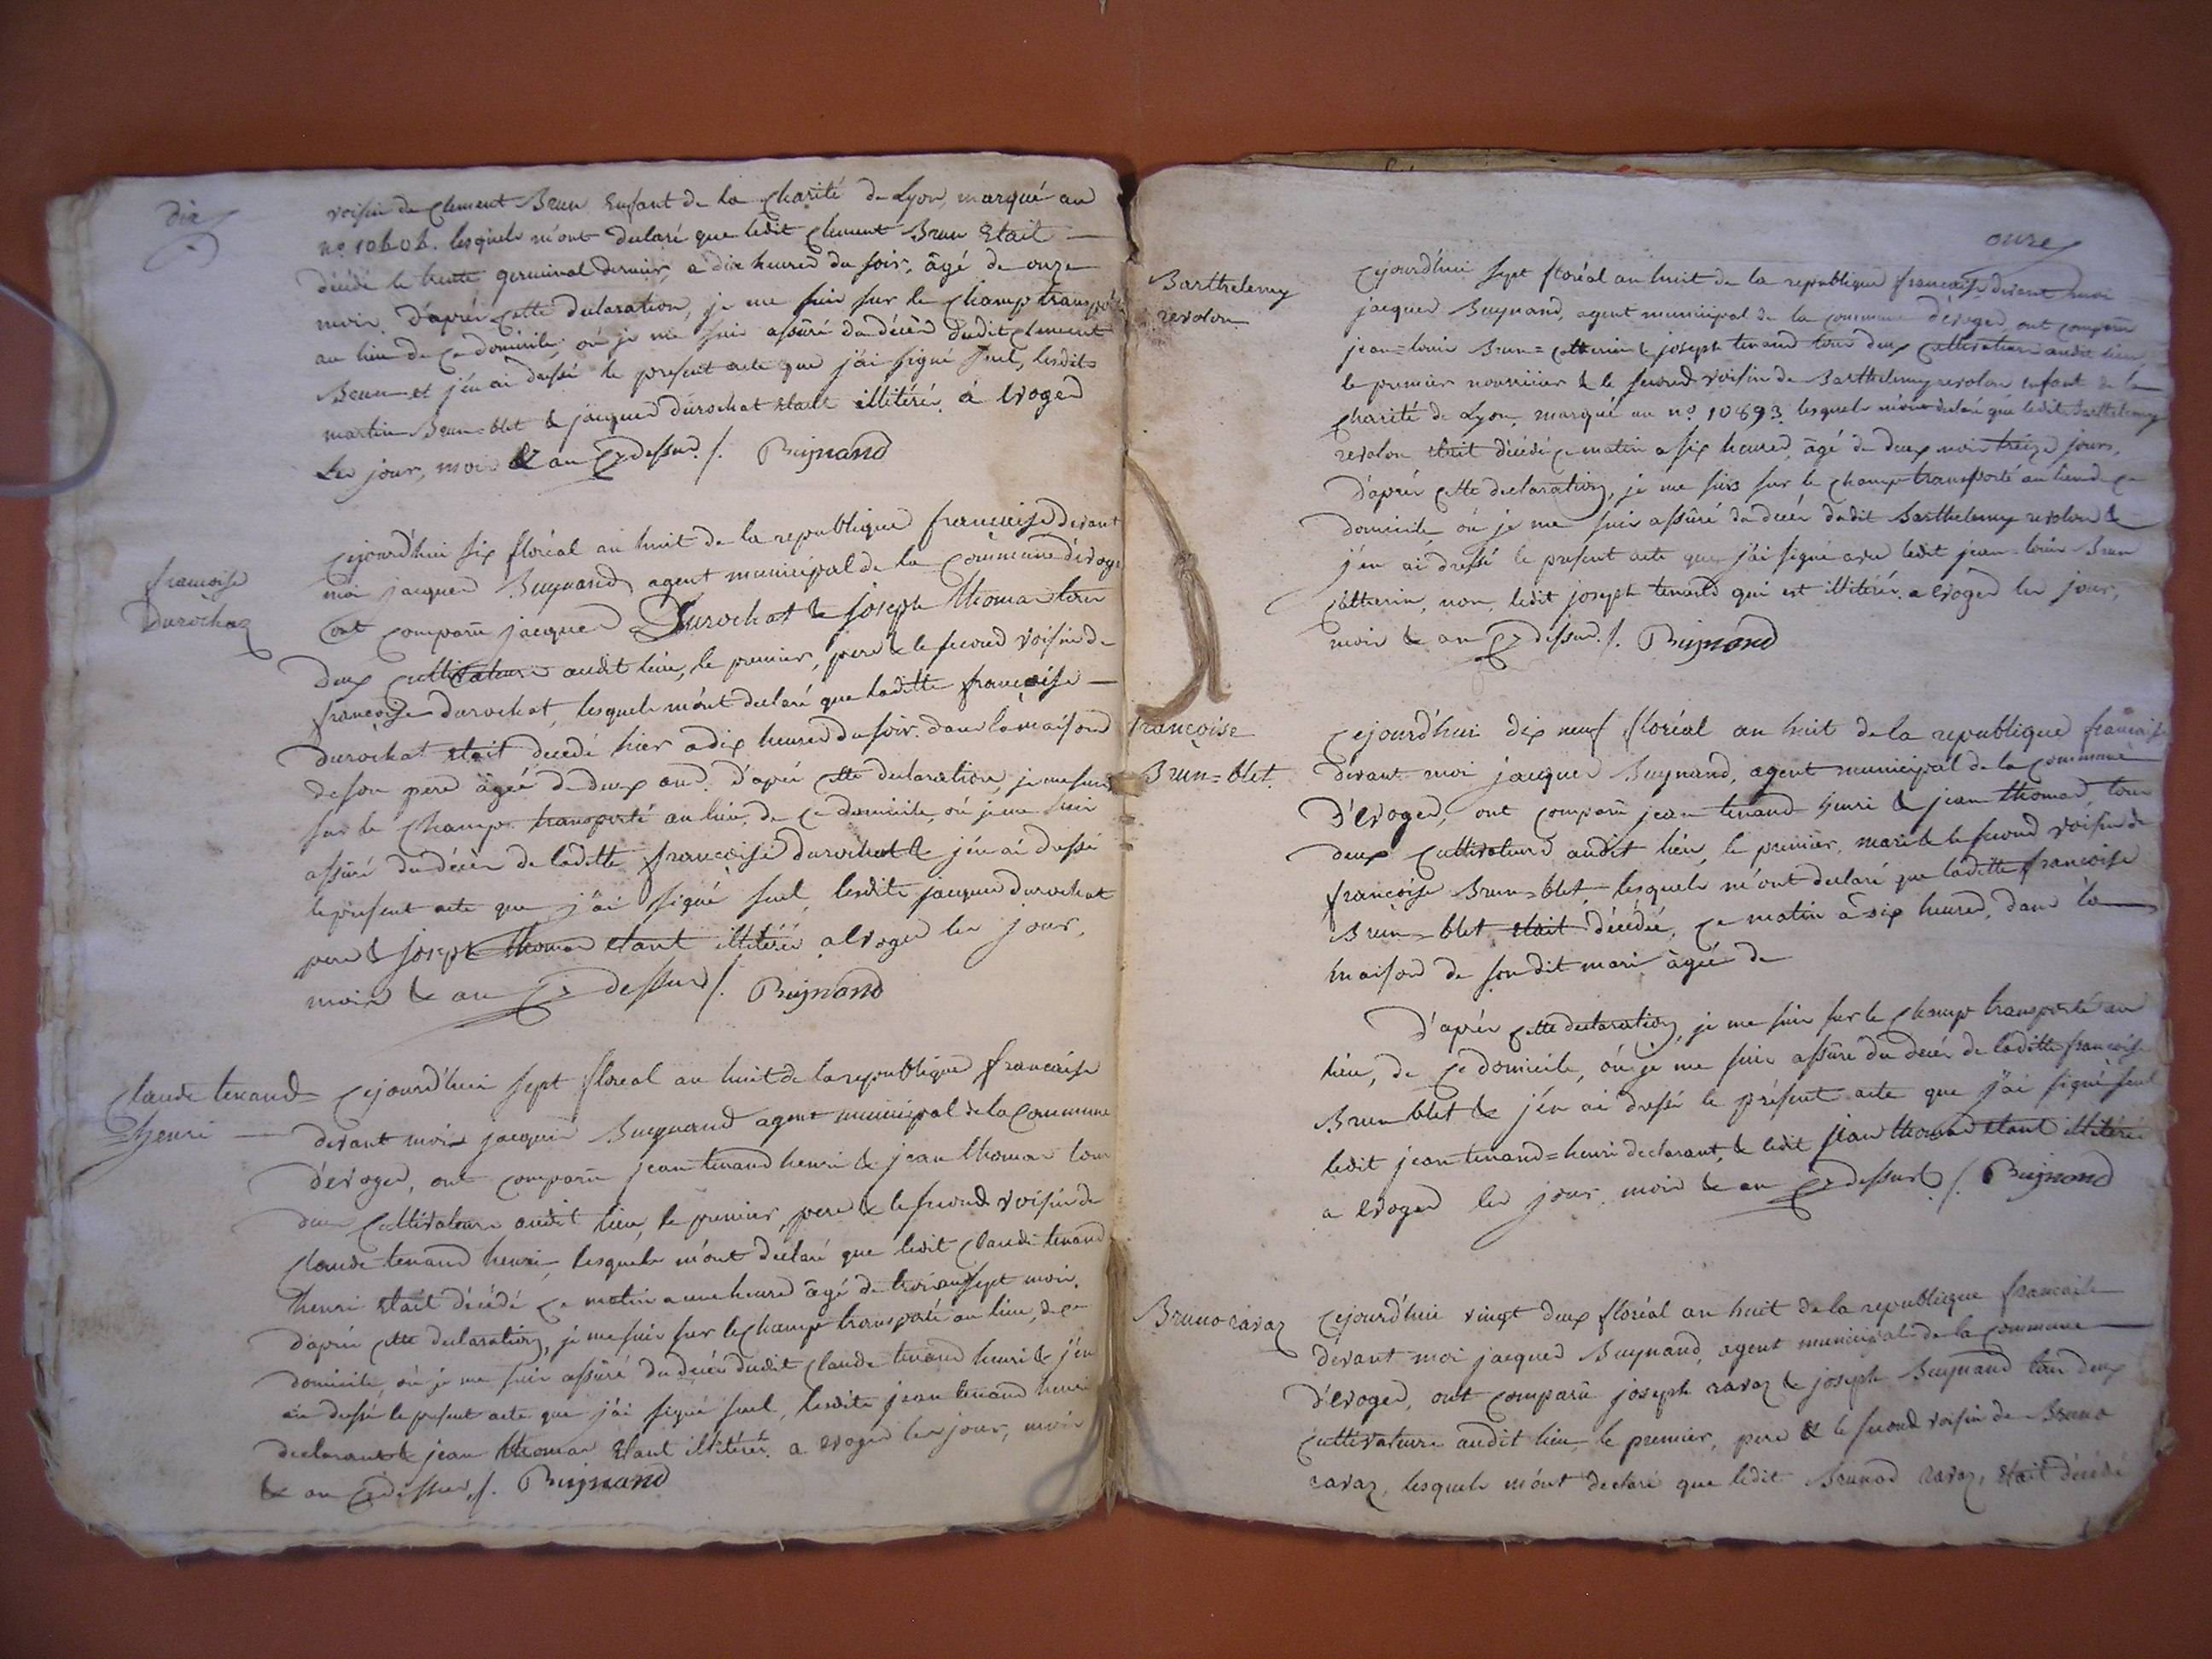 dix
voisin de Clement Brun Enfant de la Charité de Lyon, marqué au
no. 10404. lesquels m'ont declaré que ledit Clement Brun Etait
décédé le trente germinal dernier, a dix heures du soir, âgé de onze
mois. D'après cette declaration, je me suis sur le champ transporté
au lieu de ce domicile, où je me suis assûré du décès dudit Clement
Brun et j'en ai dressé le present acte que j'ai signé seul, lesdits
martin Brun=blet & jacques durochat étant illitérés. à Evoges
Les jour, mois & an Cy dessus ./. Bujnand
francoise
Durochaz
Cejourd'hui six floréal an huit de la republique francaise devant
moi jacques Buynand agent municipal de la Commune d'Evoges
ont comparu jacques Durochat & joseph thomas tous
deux Cultivateurs audit lieu, le premier, pere & le second voisin de
francoise durochat, lesquels m'ont declaré que ladtte francoise
durochat etait decedé hier a dix heures du soir dans la maison
de son pere âgée de deux ans. D'après cette declaration, je me suis
sur le champ transporté au lieu, de ce domicile, où je me suis
assûré du décès de ladtte francoise durochat & j'en ai dressé
le present acte que j'ai signé seul, lesdits jacques durochat
pere & joseph thomas etant illitérés. a Evoges les jour,
mois & an Cy dessus /. Bujnand
Claude tenand=
=henri
Cejourd'hui sept floreal an huit de la republique francaise
devant moi jacques Buynand agent municipal de la Commune
d'Evoges, ont comparu jean tenand henri & jean thomas tous
deux Cultivateurs audit lieu, le premier, pere & le second voisin de
Claude tenand henri, lesquels m'ont declaré que ledit Claude tenand
henri etait décédé ce matin a une heures âgé de trois ans sept mois.
D'après cette declaration, je me suis sur le champ transporté au lieu, de ce
domicile, où je me suis assûré du décès dudit Claude tenand henri & j'en
ai dressé le present acte que j'ai signé seul, lesdits jean tenand henri
declarant & jean thomas etant illitérés. a Evoges les jour, mois
& an Cy dessus, /. Bujnand
onze
Barthelemy
revolon
Cejourd'hui sept floréal an huit de la republique francaise devant moi
jacques Buynand, agent municipal de la commune d'Evoges, ont comparu
jean=louis Brun=Catherin & joseph tenand tous deux Cultivateurs audit lieu,
le premier nourricier & le second voisin de Barthelemy revolon enfant de la
Charité de Lyon, marqué au no. 10893. lesquels m'ont declaré que ledit Barthelemy
revolon etait décédé ce matin a six heures, âgé de deux mois treize jours,
D'après cette declaration, je me suis sur le champ transporté au lieu de ce
domicile où je me suis assûré du décès dudit Barthelemy revolon &
j'en ai dressé le present acte que j'ai signé avec ledit jean=louis Brun
Catherin, non, ledit joseph tenand qui est illitéré. a Evoges les jour,
mois & an Cy dessus ./. Bujnand
francoise
Brun=blet.
Cejourd'hui dix neuf floréal an huit de la republique francaise
devant moi jacques Buynand, agent municipal de la commune
d'Evoges, ont comparu jean tenand henri & jean thomas, tous
deux Cultivateurs audit lieu, le premier, mari & le second voisin de
francoise Brun=blet, lesquels m'ont declaré que ladtte francoise
Brun=blet etait décédée, ce matin à six heures, dans la
maison de son dit mari âgée de
D'après cette declaration, je me suis sur le champ transporté au
lieu, de ce domicile, où je me suis assûré du décès de ladtte francoise
Brun blet & j'en ai dressé le présent acte que j'ai signé seul
ledit jean tenand=henri declarant, & ledit jean thomas etant illitérés
a Evoges les jour, mois & an Cy dessus ./. Bujnand
Bruno ravaz
Cejourd'hui vingt deux floréal an huit de la republique francaise
devant moi jacques Buynand, agent municipal de la commune
d'Evoges, ont comparu joseph ravaz & joseph Buynand tous deux
Cultivateurs audit lieu, le premier, pere & le second voisin de Bruno
ravaz, lesquels m'ont declaré que ledit Brunod ravaz, etait décédé